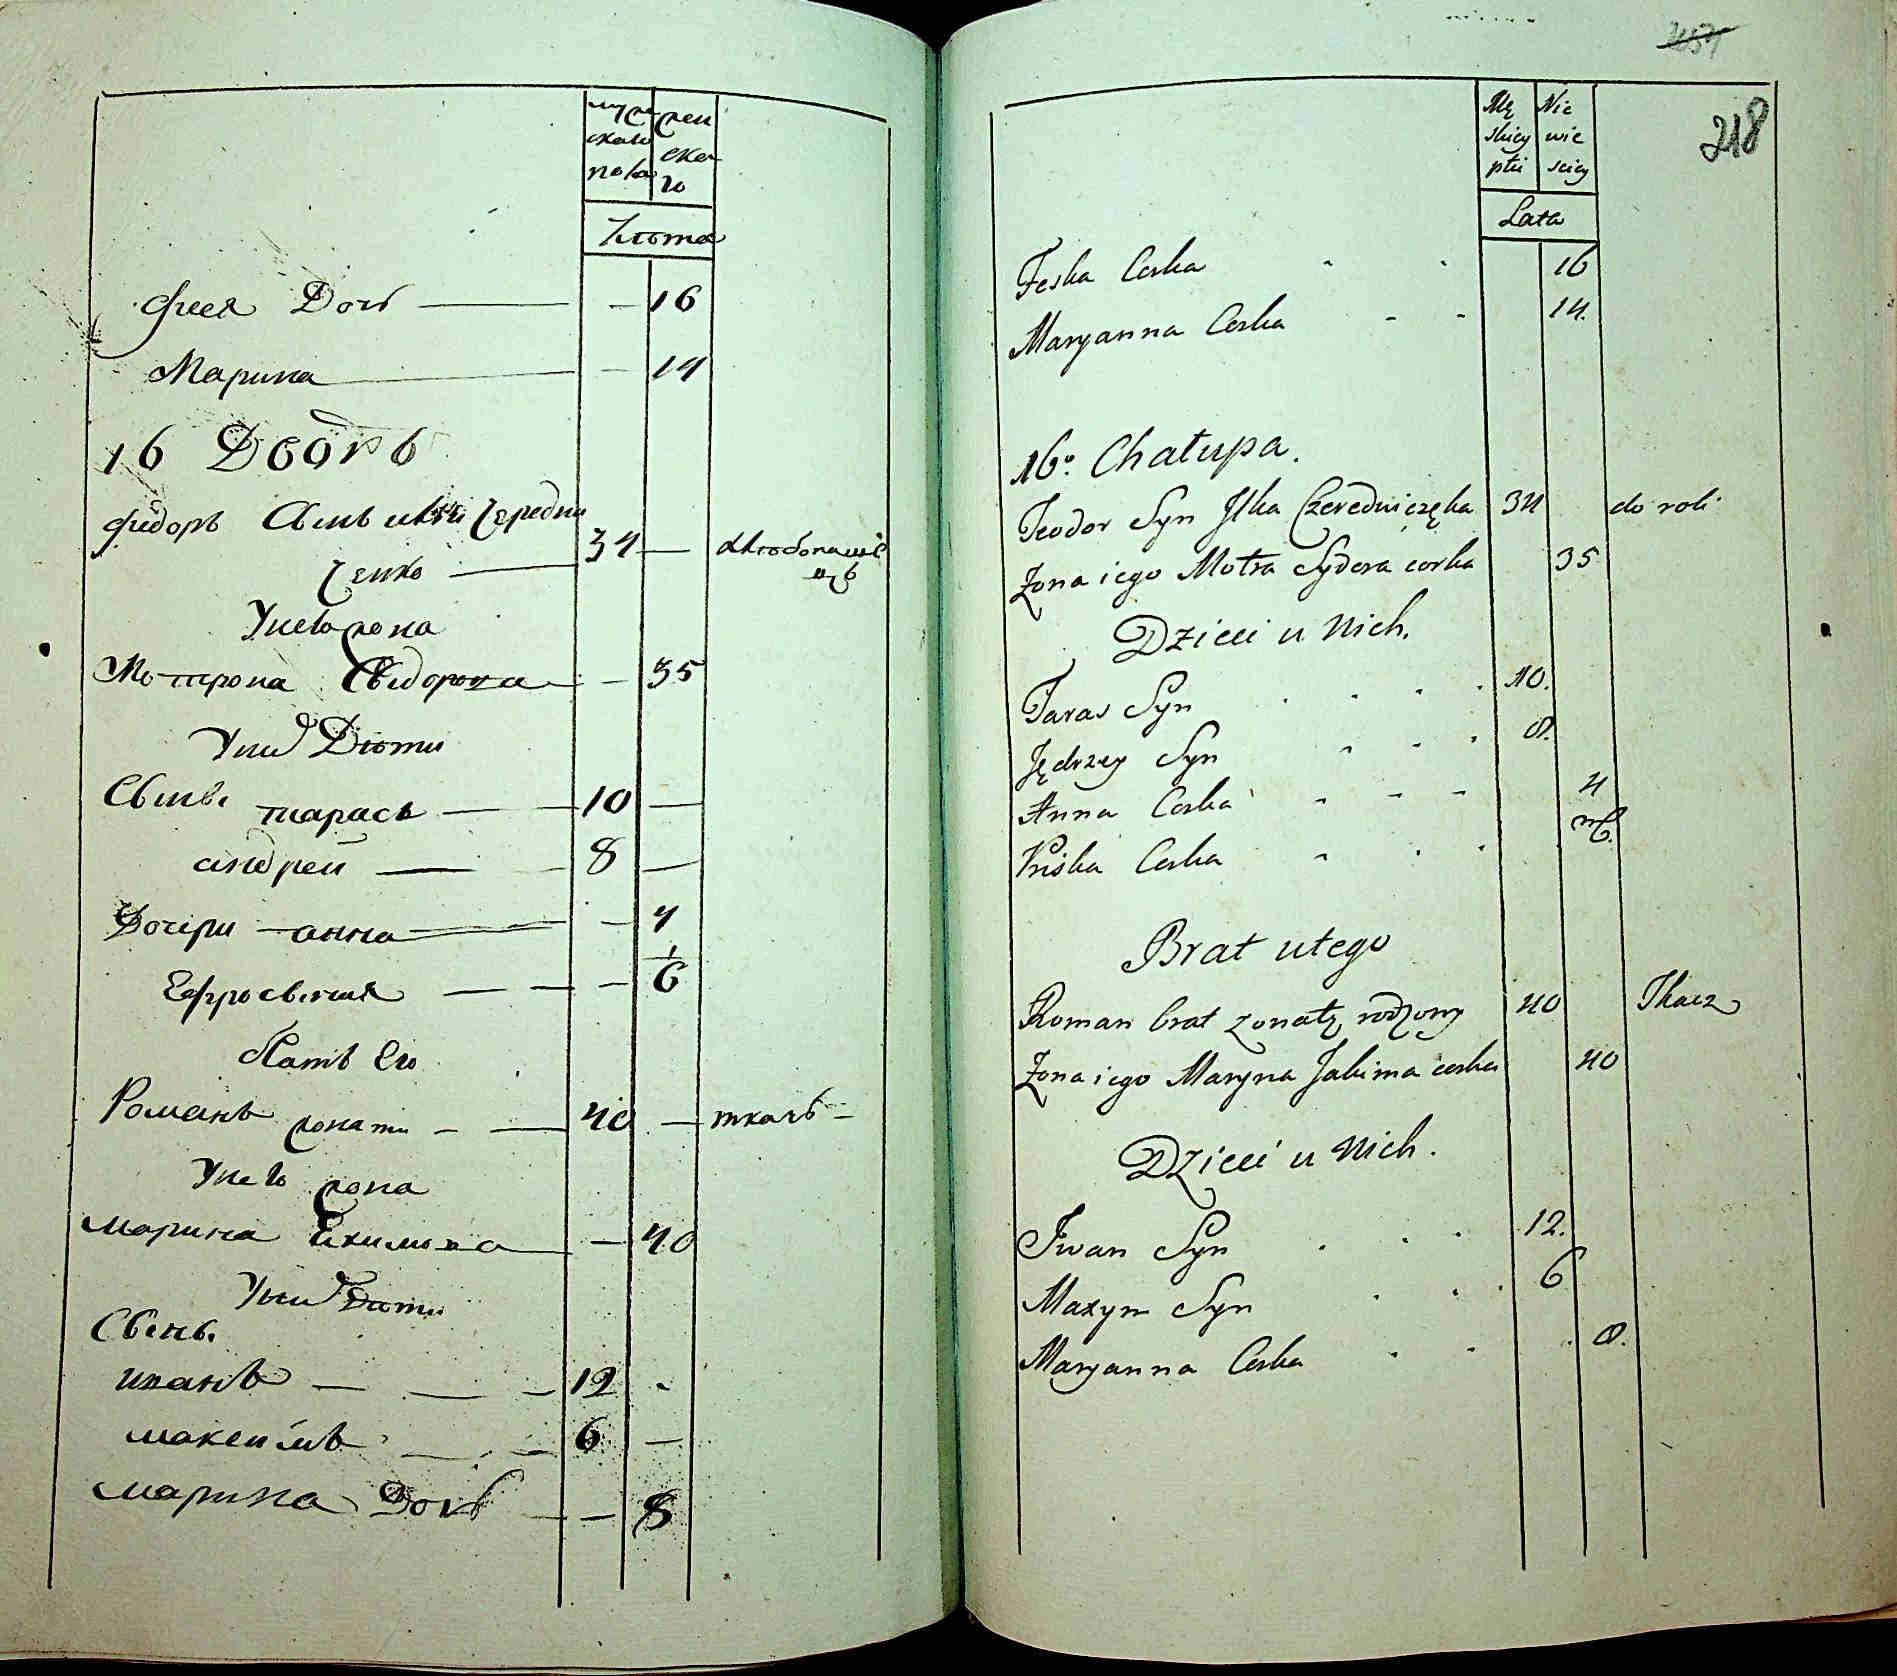 муже
скаго
пола
жен
ска
го
Лѣта
Фися Дочь — — 16
Марина — — 14
16 Дворъ
Федоръ Сынъ Чередни
ченко — 34 — хлѣбопаше
цъ
У него жена
Мотрона Сидорова — — 35
У них Дѣти
Сыны тарасъ — 10 —
андрей — 8 —
Дочери — анна — — 4
Ефросиния — — — 1/6
Братъ Его
Романъ жонати — — 40 — ткачъ —
У него жона
марина Екимова — — 40
У них Дѣти
Сыны
иванъ — — — 12 -
максимъ — — 6 —
марина Дочь — — 8
218
Mę
skiey
płci
Nie
wie
sciey
Lata
Feska Corka 16
Maryanna Corka 14.
16o. Chałupa.
Teodor Syn Ilka Czeredniczęka 34 do roli
Zona iego Motra Sydora corka 35
Dzieci u Nich.
Taras Syn 10.
Jędrzey Syn 8.
Anna Corka 4
Priska Corka
Brat u tego
Roman brat zonatị rodzony 40 Tkacz
Zona iego Maryna Jakima corka 40
Dzieci u Nich.
Iwan Syn 12.
Maxym Syn 6
Maryanna Corka 8.